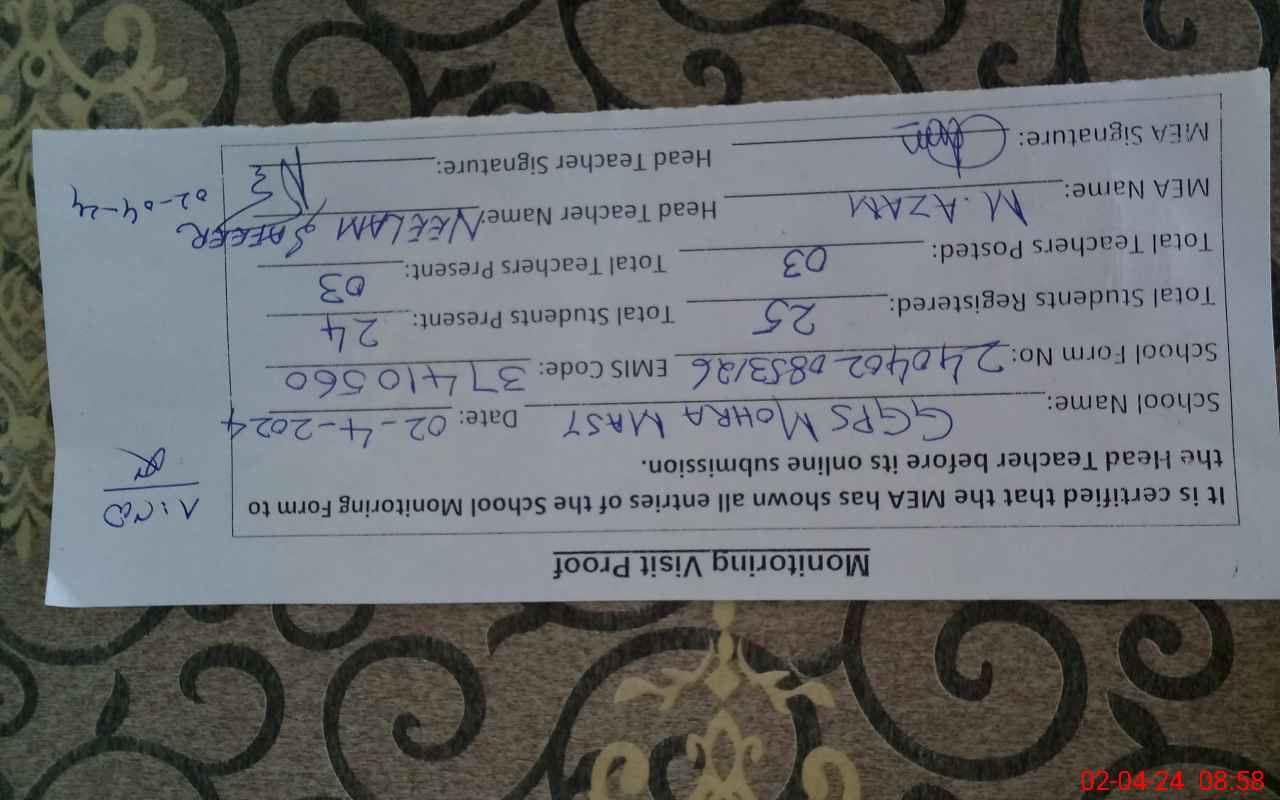 Monitoring Visit Proof
It is certified that the MEA has shown all entries of the School Monitoring Form to
the Head Teacher before its online submission.
School Name: GGPS MOHRA MAST Date: 02-4-2024
School Form No: 2404020853126 EMIS Code: 37410560
Total Students Registered: 25 Total Students Present: 24
Total Teachers Posted: 03 Total Teachers Present: 03
MEA Name: M. AZAM Head Teacher Name: NEELAM
MEA Signature: Head Teacher Signature:
02-04-24
02-04-24 08:58